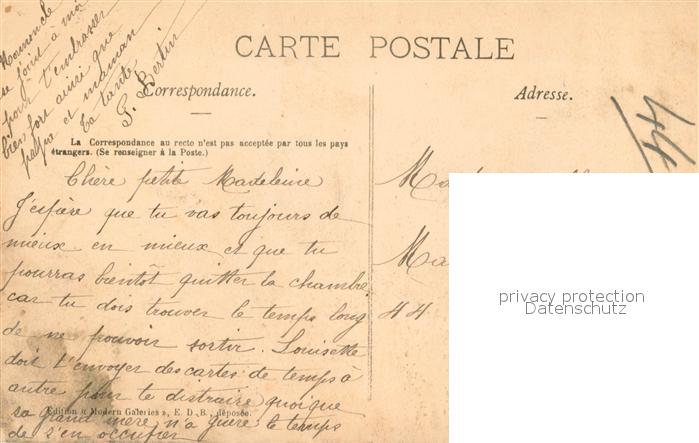 CARTE POSTALE
Correspondance.
Adresse.
La Correspondance au recto n'est pas acceptée par tous les pays
étrangers. (Se renseigner à la Poste.)
Chère petite Madeleine
J'espère que tu vas toujours de
mieux en mieux et que tu
pourras bientôt quitter la chambre,
car tu dois trouver le temps long
de ne pouvoir sortir. Louisette
doit t'envoyer des cartes de temps à
autre pour te distraire quoique
sa grand mère n'a guère le temps
de s'en occuper
se joint à moi
pour t'embrasser
bien fort ainsi que
et maman
Ta tante
G. Bertin
44
Ma
Ma
44
privacy protection
Datenschutz
Edition « Modern Galeries », E. D. B., déposée.